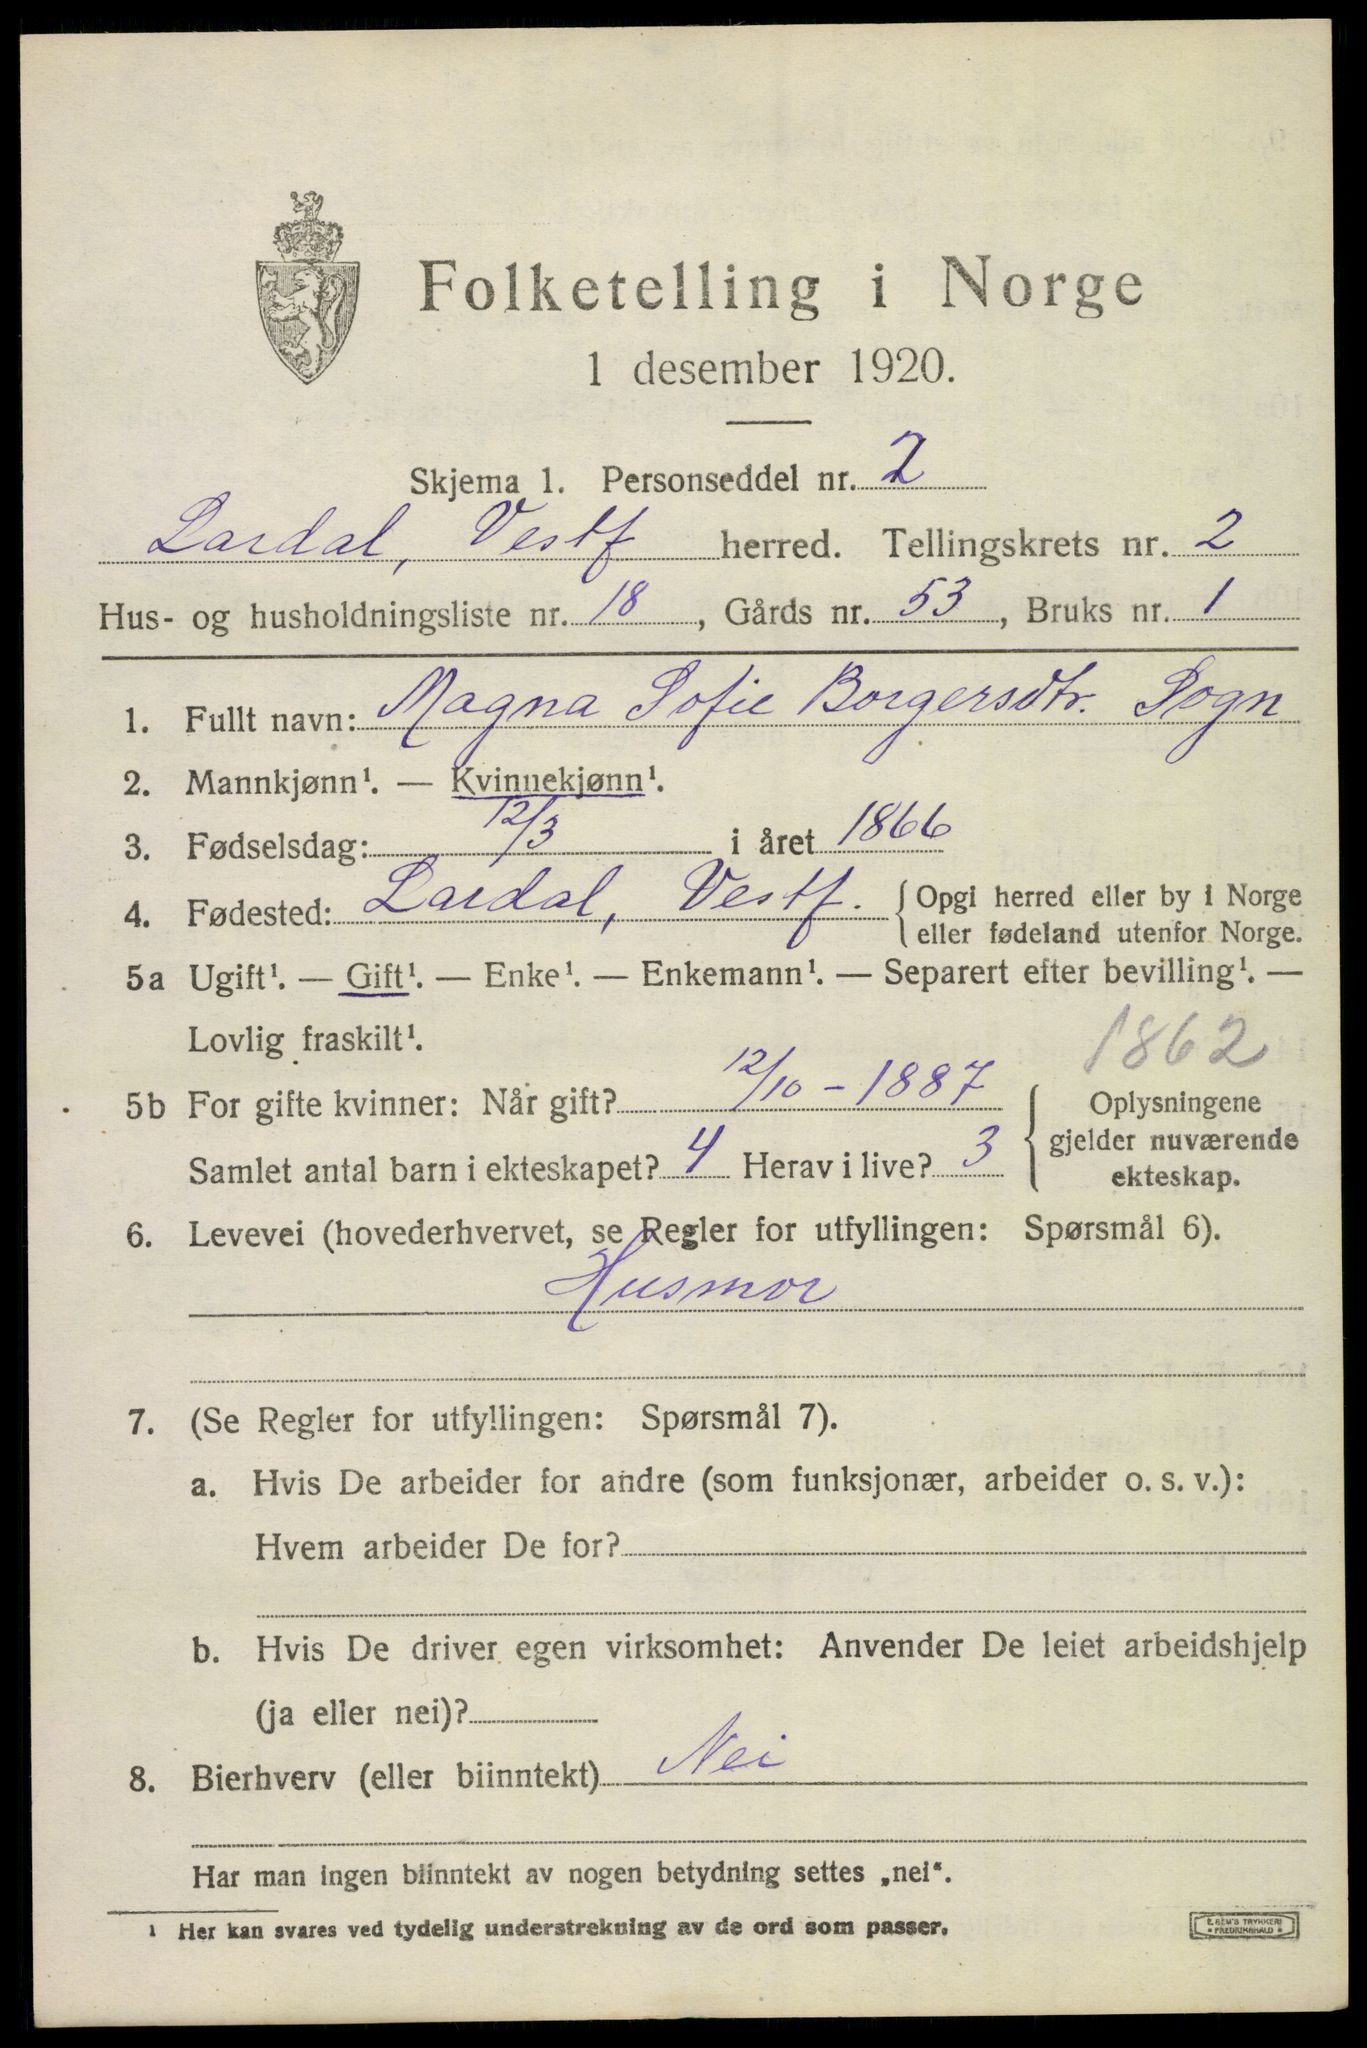 Folketelling i Norge
1 desember 1920.
Skjema 1. Personseddel nr. 2
Lardal, Vestf herred. Tellingskrets nr. 2
Hus- og husholdningsliste nr. 18, Gårds nr. 53, Bruks nr. 1
1. Fullt navn: Magna Sofie Borgersdtr. Sogn
2. Mannkjønn¹. — Kvinnekjønn¹.
3. Fødselsdag: 12/3 i året 1866
4. Fødested: Lardal, Vestf. { Opgi herred eller by i Norge
eller fødeland utenfor Norge.
5a Ugift¹. — Gift¹. — Enke¹. — Enkemann¹. — Separert efter bevilling¹. —
Lovlig fraskilt¹.
1862
5b For gifte kvinner: Når gift? 12/10 - 1887
Samlet antal barn i ekteskapet? 4 Herav i live? 3
{ Oplysningene
gjelder nuværende
ekteskap.
6. Levevei (hovederhvervet, se Regler for utfyllingen: Spørsmål 6).
Husmor
7. (Se Regler for utfyllingen: Spørsmål 7).
a. Hvis De arbeider for andre (som funksjonær, arbeider o. s. v.):
Hvem arbeider De for?
b. Hvis De driver egen virksomhet: Anvender De leiet arbeidshjelp
(ja eller nei)?
8. Bierhverv (eller biinntekt) Nei
Har man ingen biinntekt av nogen betydning settes „nei“.
¹ Her kan svares ved tydelig understrekning av de ord som passer.
E. SEM'S TRYKKERI
FREDRIKSHALD